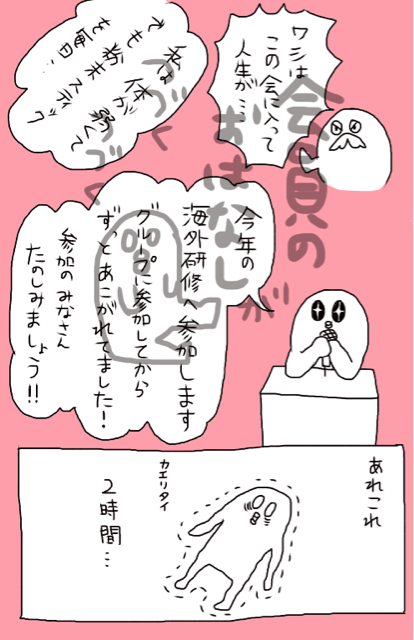 ワシは
この会に入って
人生が…
私は体が弱くて
でも粉末スティック
を毎日、
会員の
おはなしが
つづく
つづく
今年の
海外研修へ参加します
グループに参加してから
ずっとあこがれてました！
参加のみなさん
たのしみましょう!!
あれこれ
2時間…
カエリタイ